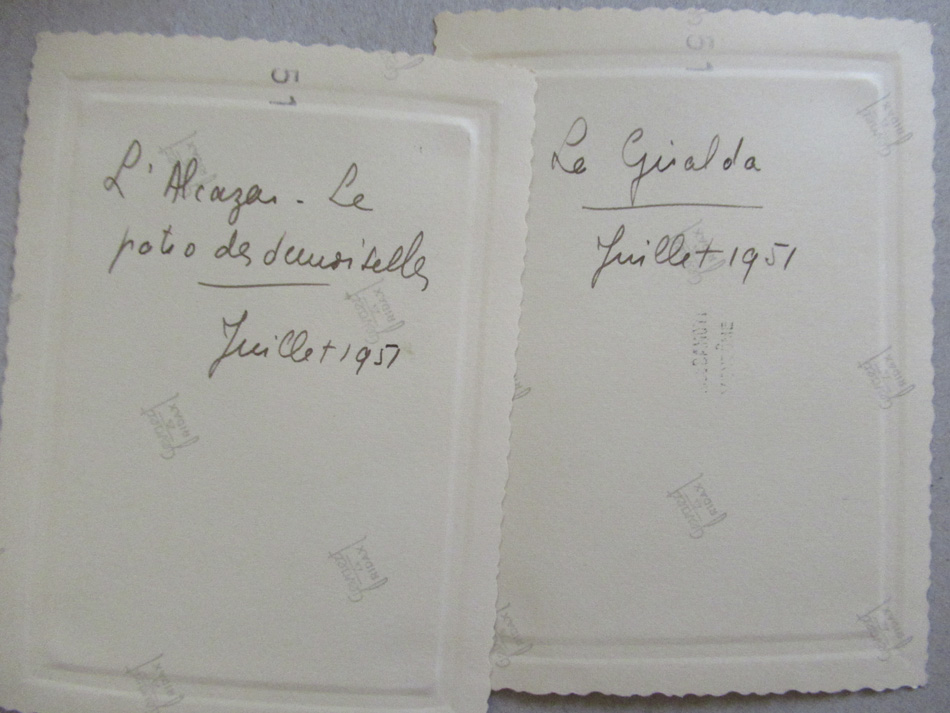 51
L'Alcazar - Le
patio des demoiselles
Juillet 1951
51
La Giralda
Juillet 1951
Gevaert
RIDAX